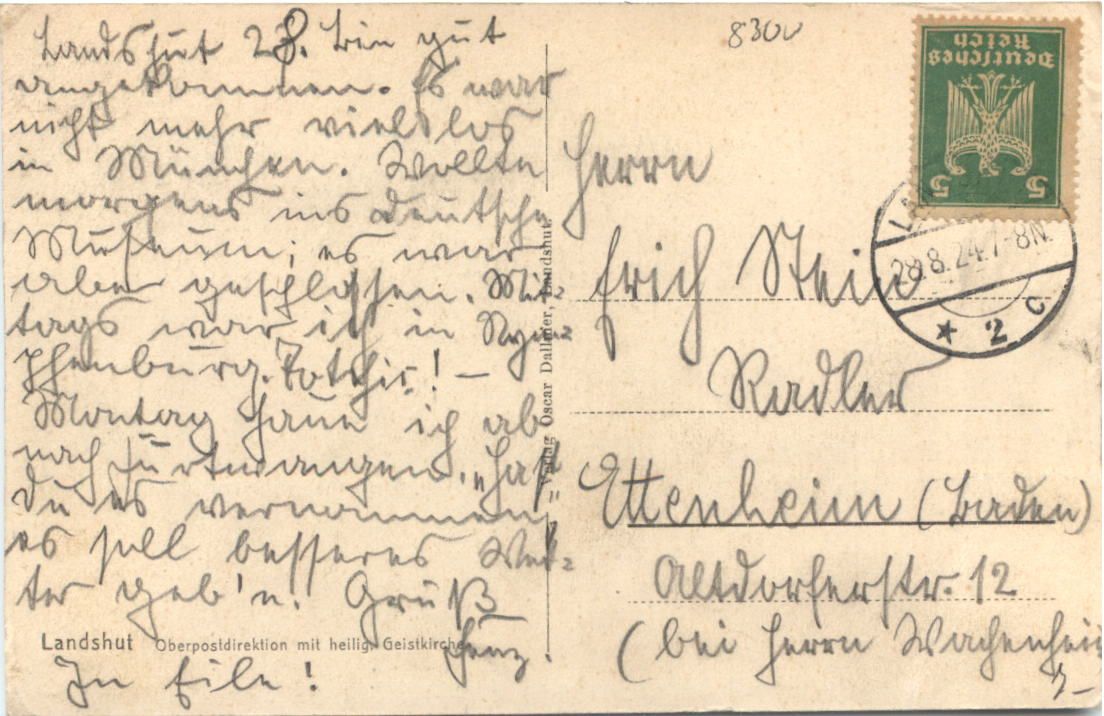 Landshut 28. bin gut
angekommen. Es war
nicht mehr viel los
in München. Wollte
morgens ins deutsche
Museum; es war
aber geschlossen. Mit=
tags war ich in Nym=
phenburg. !—
Montag haue ich ab
nach Furtwangen. „Hast
du es vernommen
es soll besseres Wet=
ter geb'n! Gruß
In Eile!
Landshut Oberpostdirektion mit heilig. Geistkirche
= Verlag Oscar Dallmer, Landshut.
8300
Deutsches
Reich
5 5
28.8.24.7-8N.
★ 2 C
Herrn
Erich Stein
Radler
Ettenheim (Baden)
Altdorferstr. 12
(bei Herrn Wachenheim